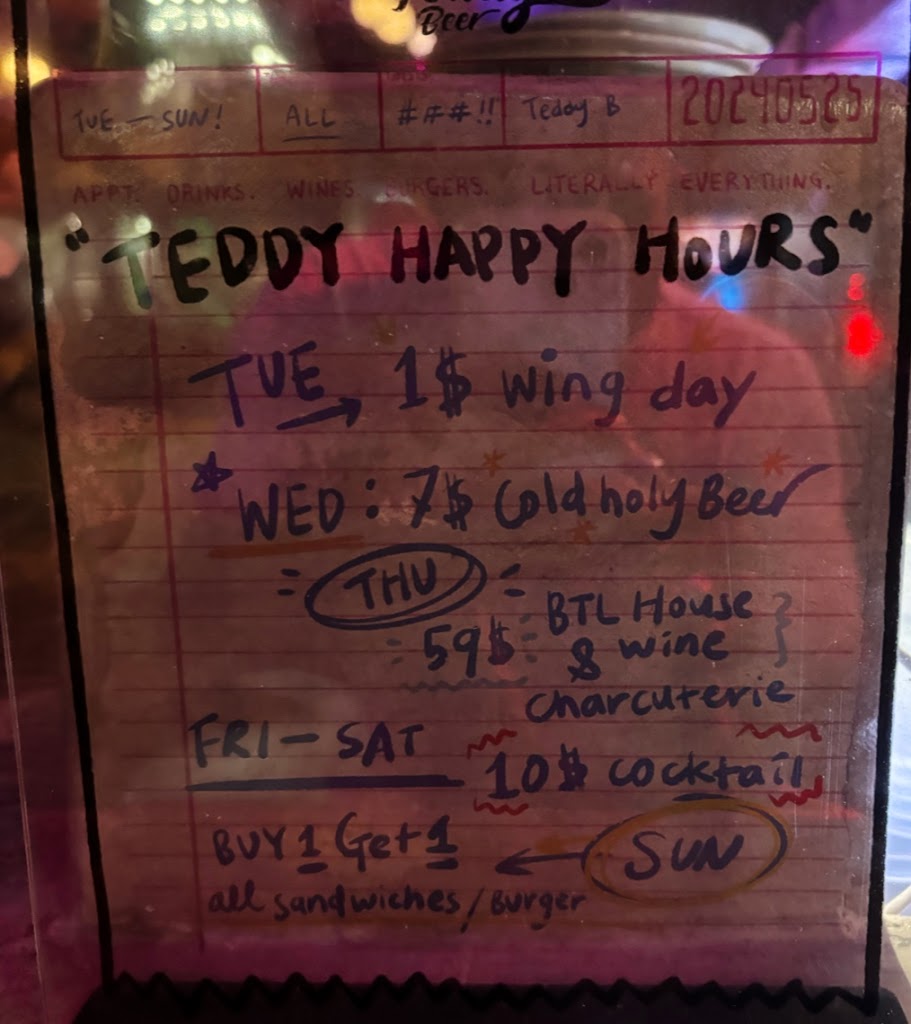 Beer
TUE - SUN! ALL ###!! Teddy B 20240525
APPT. DRINKS. WINES. BURGERS. LITERALLY EVERYTHING.
"TEDDY HAPPY HOURS"
TUE → 1$ wing day
WED: 7$ Cold holy Beer
THU
59$ BTL House
& wine
charcuterie
FRI - SAT
10$ cocktail
BUY 1 Get 1 ← SUN
all sandwiches/Burger